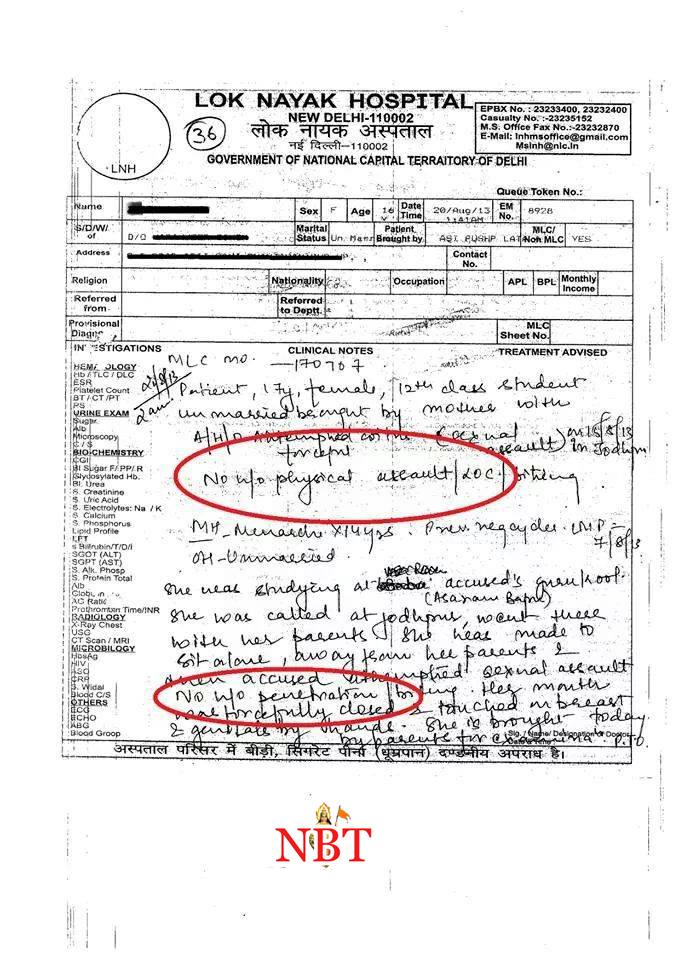 LOK NAYAK HOSPITAL
NEW DELHI-110002
36
लोक नायक अस्पताल
नई दिल्ली-110002
GOVERNMENT OF NATIONAL CAPITAL TERRAITORY OF DELHI
LNH
EPBX No. : 23233400, 23232400
Casualty No.:-23235152
M.S. Office Fax No.:-23232870
E-Mail: lnhmsoffice@gmail.com
Mslnh@nic.in
Queue Token No.:
Name Sex F Age 16 Y Date Time 20/Aug/13 1:41AM EM No. 8928
S/D/W/ of D/O Marital Status Un Marr Patient Brought by ASI PUSHP LAT MLC/ Non MLC YES
Address Contact No.
Religion Nationality Occupation APL BPL Monthly Income
Referred from Referred to Deptt.
Provisional MLC Sheet No.
CLINICAL NOTES TREATMENT ADVISED
MLC no. 170707
2am Patient, 17y, female, 12th class student
unmarried brought by mother with
A/H/O Attempted sexual assault on 15/8/13 in Jodhpur
No h/o physical assault/LOC/biting
MH-Menarche x 14yrs. Prev. reg cycles LMP-
7/8/13
OH-Unmarried.
She was studying at accused's gurukool.
(Asaram Bapu)
She was called at jodhpur, went there
with her parents. She was made to
sit alone, away from her parents &
then accused attempted sexual assault
No h/o penetration/biting. Her mouth
was forcefully closed & touched on breast
& genitals by hands. She is brought today
by parents for P.T.O
HEMATOLOGY
Hb / TLC / DLC
ESR
Platelet Count
BT / CT / PT
PS
URINE EXAM
Sugar
Alb
Microscopy
C / S
BIO-CHEMISTRY
Bl Sugar F/PP/R
Glycosylated Hb.
Bl. Urea
S. Creatinine
S. Uric Acid
S. Electrolytes: Na / K
S. Calcium
S. Phosphorus
Lipid Profile
LFT
s Bilirubin/T/D/I
SGOT (ALT)
SGPT (AST)
S. Alk. Phosp
S. Protein Total
Alb
AG Ratio
Prothromben Time/INR
RADIOLOGY
X-Ray Chest
USG
CT Scan / MRI
MICROBIOLOGY
HbsAg
HIV
ASO
CRP
S. Widal
Blood C/S
OTHERS
ECG
ECHO
ABG
Blood Group
अस्पताल परिसर में बीड़ी, सिगरेट पीना (धूम्रपान) दण्डनीय अपराध है।
NBT